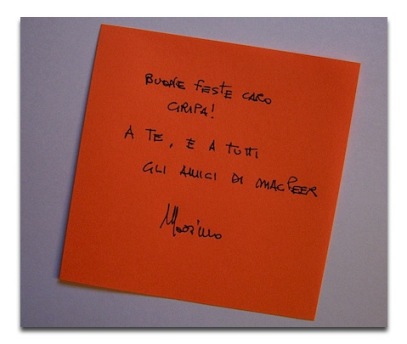 BUONE FESTE CARO
GRIPA!
A TE, E A TUTTI
GLI AMICI DI MACPEER
Massimo